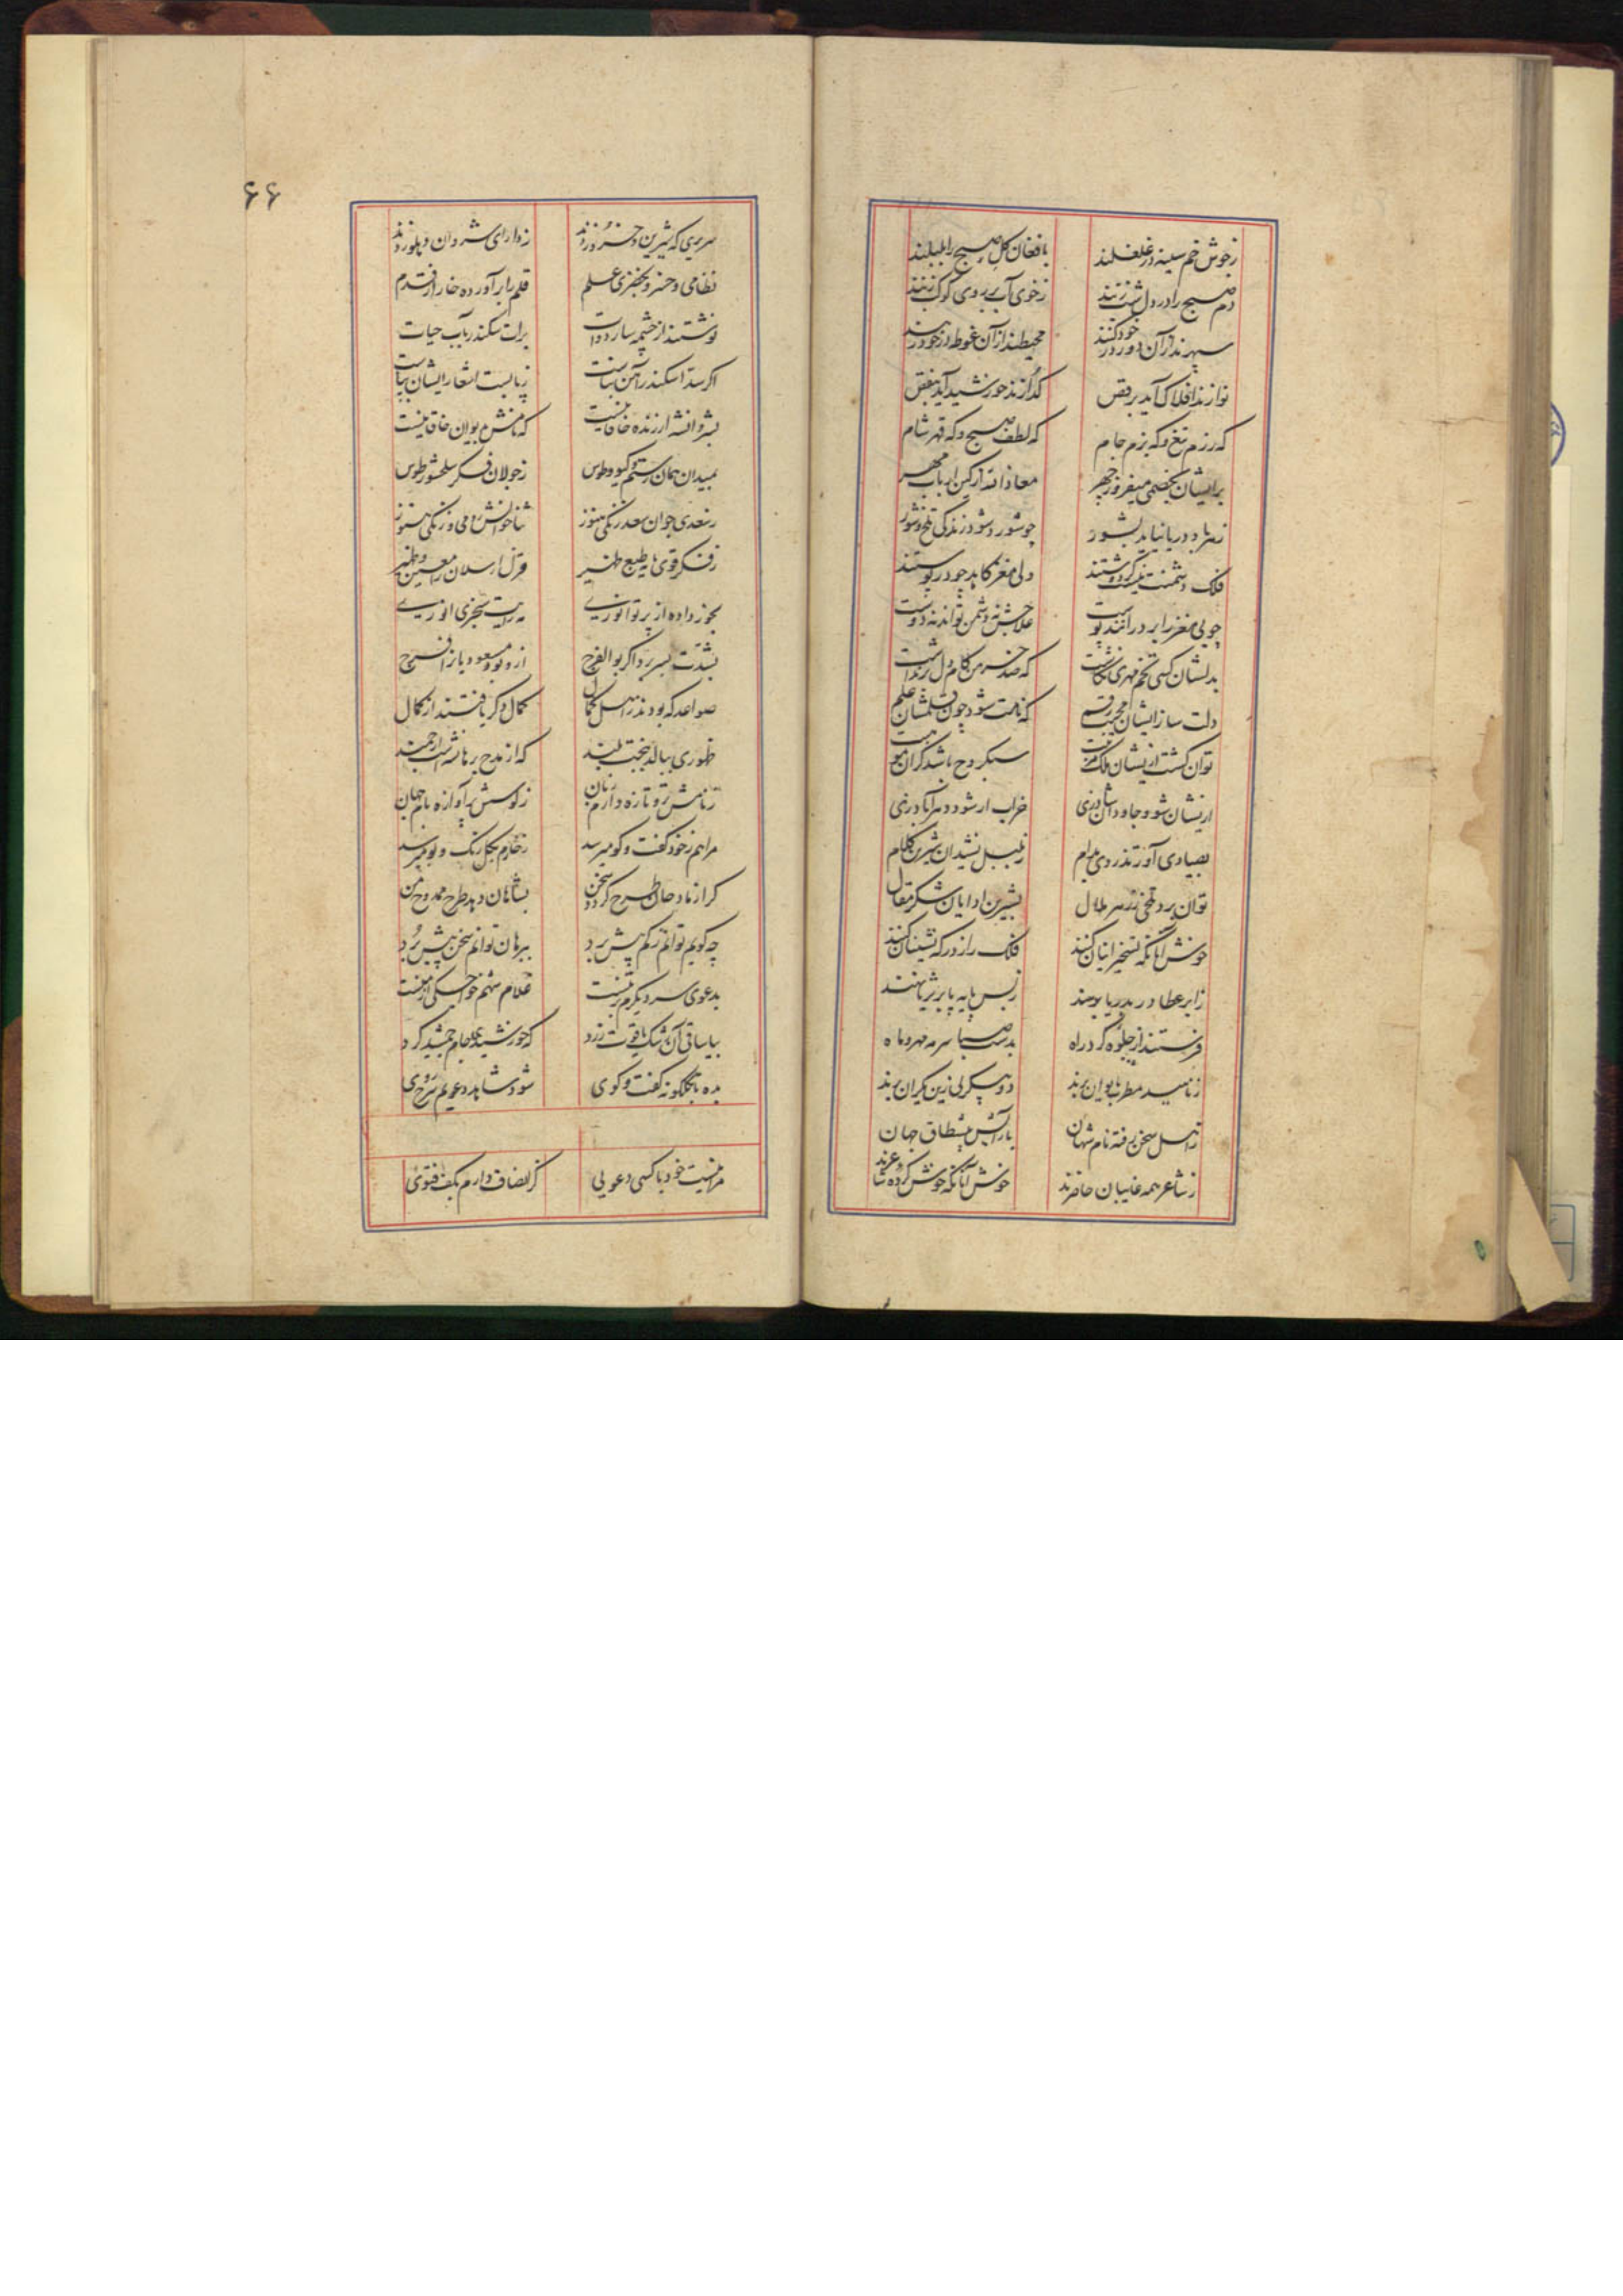 ز جوش خم سینه در غلغلند
با فغان گل صبح را بلبلند
دم صبح را در دل شب زنند
ز خوی آب بر روی کوکب زنند
سپهرند از آن دور در خود کنند
محیطند از آن غوطه در خود زنند
نوازند افلاک آید برقص
گدازند خورشید آید بنقص
که رزم تیغ و که بزم جام
که لطف صبح و که قهر شام
بر ایشان بخصمی میفروز چهر
معاذ الله از کین ارباب مهر
ز صد بار دریا نیاید بشور
چو شورد شود زندگی تلخ و شور
فلک دشمنت نیست گر دوستند
ولی مغز کاهد چو در پوستند
چو بی مغز را بر در آمد ز پوست
علاجش نه دشمن تواند نه دوست
بدلشان کسی تخم مهری نکاشت
که صد خرمن کام دل برنداشت
دلت ساز ایشان محبت رقم
که نامت شود چون قلمشان علم
توان گشت ازیشان ملک مرتبت
سبکروح باشد گران موهبت
ازیشان شو و جاودان شاد زی
خراب ار شود دهر آباد زی
بصیادی آور تذروی بدام
ز بلبل نشیدان شیرین کلام
توان برد تلخی ز زهر ملال
بشیرین ادایان شکر مقال
خوش آنانکه تسخیر اینان کنند
فلک را ز درگه نشینان کنند
ز ابر عطا در بدریا دهند
ز بس پایه پا بر ثریا نهند
فرستند از جلوه گرد راه
بدست صبا سرمه مهر و ماه
ز ناهید مطرب بایوان برند
دو پیکر پی زین یکران برند
ز اهل سخن رفته نام شهان
بآرایش پیشطاق جهان
ز شاعر همه غایبان حاضرند
خوش آنانکه خوش کرده شاعرند
۶۶
سریری که شیرین و خسرو زدند
ز دارای شروان و پهلو زدند
نظامی و خسرو بخضری علم
قلم را برآورده خار از قدم
نوشتند از چشمه سار دوات
برات سکندر بآب حیات
اگر سد اسکندر آهن بناست
ز پا بست اشعار ایشان بپاست
بشروانشه ارزنده خاقانیست
که نامش بدیوان خاقانیست
بمیدان همان رستم و گیو و طوس
ز جولان فکر سلحشور طوس
ز سعدی جوان سعد زنگی هنوز
ثناخوانش رومی و زنگی هنوز
ز فکر قوی مایه طبع ظهیر
قزل ارسلان را معین و ظهیر
بخور داده از پرتو انوری
مه رایت سنجری انوری
بشدت بسر برد اگر بوالفرج
ازو بود مسعود با زافرج
صواعد که بودند ز اهل کمال
کمال دگر یافتند از کمال
ظهوری ببالد ببخت بلند
که از مدح برهان شه است ارجمند
ز نامش تر و تازه دارم زبان
ز کوسش پر آوازه بام جهان
مرا هم ز خود گفت و گو میرسد
ز خارم بگل رنگ و بو میرسد
گر از مادحان طرح گردد سخن
بشاهان دهد طرح ممدوح من
چه گویم توانم ز کم پیش برد
ببرهان توانم سخن پیش برد
بدعوی سر دیگرم بر تنست
غلام شهم خواجگی از منست
بیا ساقی آن رشک یاقوت زرد
که خورشید ازو جام جمشید کرد
بده تا بگلگونه گفت و گوی
شود شاهد دعویم سرخ روی
مرا نیست خود با کسی دعویی
کز انصاف دارم بکف فتویی